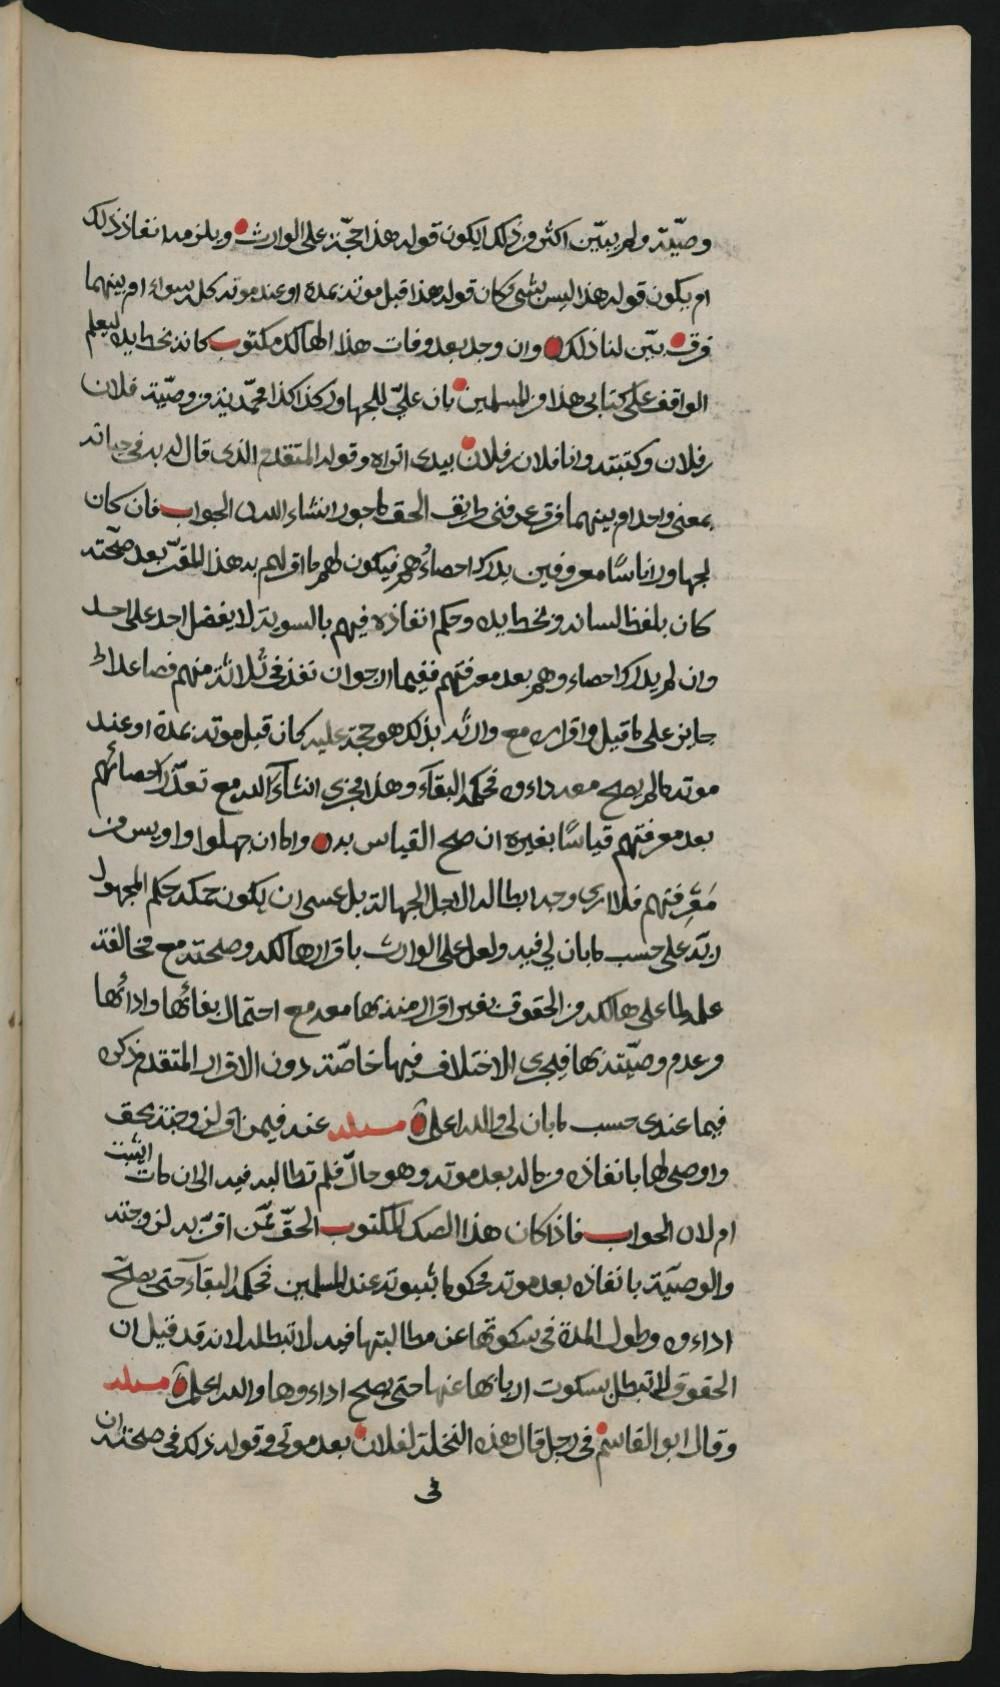 وصيّة ولم يبيّن اكثر من ذلك ايكون قوله هذا حجّة على الوارث ويلزمه انفاذ ذلك
ام يكون قوله هذا ليس بشي وكان قوله هذا قبل موته بمدة او عند موته كل سواء ام بينهما
فرق بيّن لنا ذلك وان وجد بعد وفات هذا الهالك مكتوب كانه بخط يده ليعلم
الواقف على كتابي هذا من المسلمين بان عليّ للجهاور كذا كذا محمّدية من وصيّة فلان
بن فلان وكتبته وانا فلان بن فلان بيدي اتراه وقوله المتقدم الذي قال له به في حياته
بمعنى واحد ام بينهما فرق عرفني طريق الحق ماجورا انشاء الله الجواب فان كان
لجهاور اناسًا معروفين يدرك احصاؤهم فيكون لهم ما اقر لهم به هذا المقرّ بعد صحّته
كان بلفظ لسانه وبخط يده وحكم انفاذه فيهم بالسوية لا يفضل احد على احد
وان لم يدرك احصاء وهم بعد معرفتهم ففيما ارجو ان نفذ في ثلاثة منهم فصاعدا
جايز على ما قيل واقراره مع وارثه بذلك هو حجة عليه كان قبل موته بمدة او عند
موته ما لم يصح معه داءوه فحكمه البقآء وهذا مجزي انشآء الله مع تعذّر احصائهم
بعد معرفتهم قياسًا بغيره ان صح القياس به واما ان جهلوا واويس من
مَعْرفتهم فلا ارى وجه ابطاله لاجل الجهالة بل عسى ان يكون حكمه حكم المجهول
ربّه على حسب ما بان لي فيه ولعل على الوارث باقرار هالكه وصحته مع مخالفة
علمه لما على هالكه من الحقوق بغير اقرار منه بها معه مع احتمال بقائها وادائها
وعدم وصيّته بها فيجري الاختلاف فيها خاصّة دون الاقرار المتقدم ذكره
فيما عندي حسب ما بان لي والله اعلم مسئله عنه فيمن اقر لزوجته بحق
واوصى لها بانفاذه من ماله بعد موته وهو حالّ فلم تطالبه فيه الى ان مات ايثبت
ام لا الجواب فاذا كان هذا الصك المكتوب الحقّ عمّن اقرّ به لزوجته
والوصيّة بانفاذه بعد موته محكوما بثبوته عند المسلمين فحكمه البقآء حتى يصحّ
اداءوه وطول المدة في سكوتها عن مطالبتها فيه لا تبطله لانه قد قيل ان
الحقوق لا تبطل بسكوت اربابها عنها حتى يصح اداءوها والله اعلم مسئله
وقال ابو القاسم في رجل قال هذه النخلة لفلان بعد موتي وقوله ذلك في صحته ان